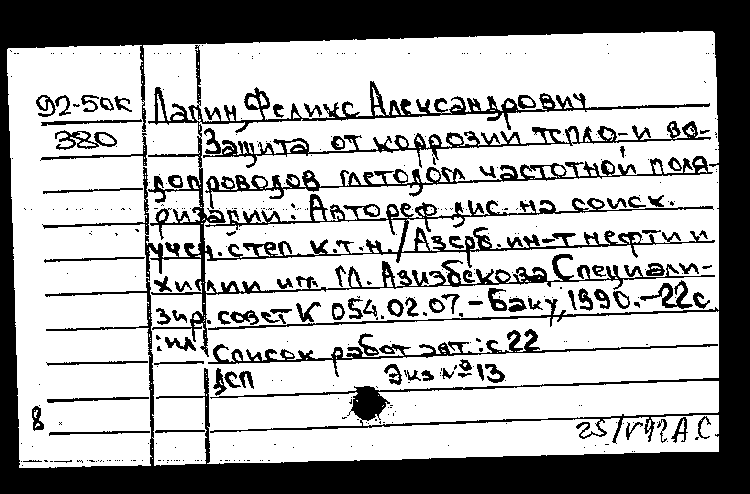 92-50к Лапин, Феликс Александрович
380 Защита от коррозии тепло- и во-
допроводов методом частотной поля-
ризации: Автореф. дис. на соиск.
учен. степ. к.т.н. / Азерб. ин-т нефти и
химии им. М. Азизбекова, Специали-
зир. совет К 054.02.07. - Баку, 1990. - 22с.
:ил. Список работ авт.: с. 22
ДСП Экз №13
8
25/V 92 А.С.